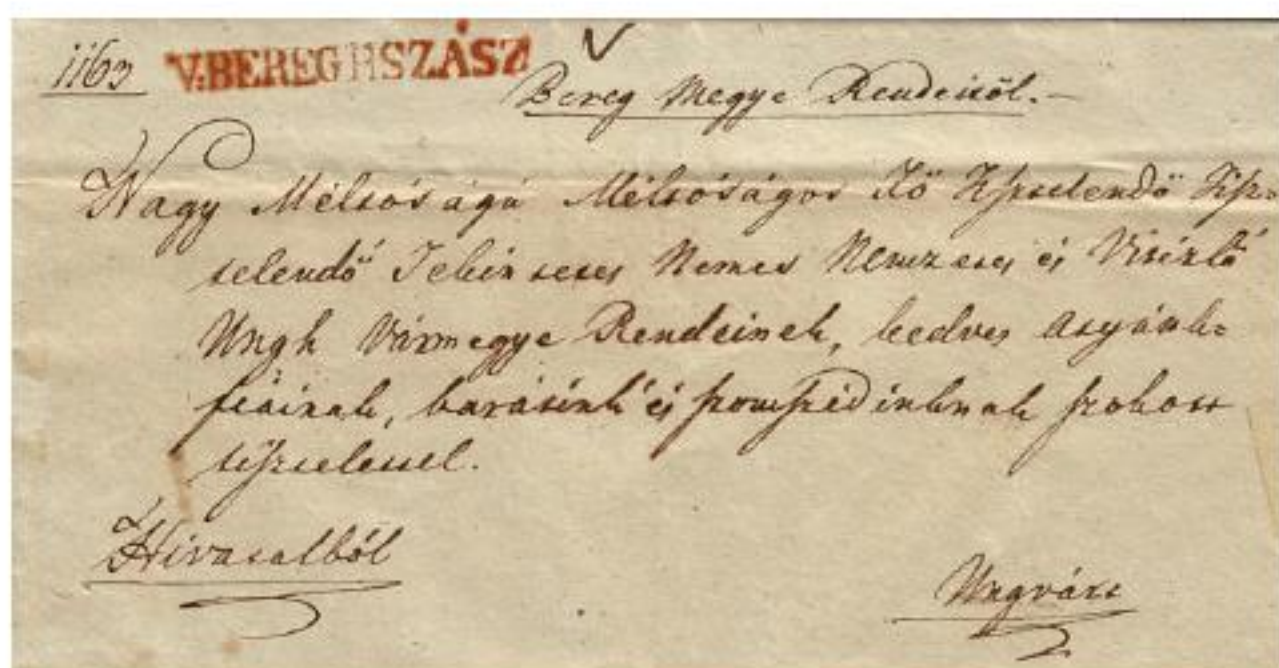 1163 V. BEREGHSZÁSZ
Bereg Megye Rendeitől.-
Nagy Méltóságú Méltóságos Fő Tisztelendő Tisz=
telendő Tekintetes Nemes Nemzetes és Vitézlő
Ungh Vármegye Rendeinek, kedves Atyánk=
fiainak, barátink és szomszédinknak szokott
tisztelettel.
Hivatalból
Ungvárt